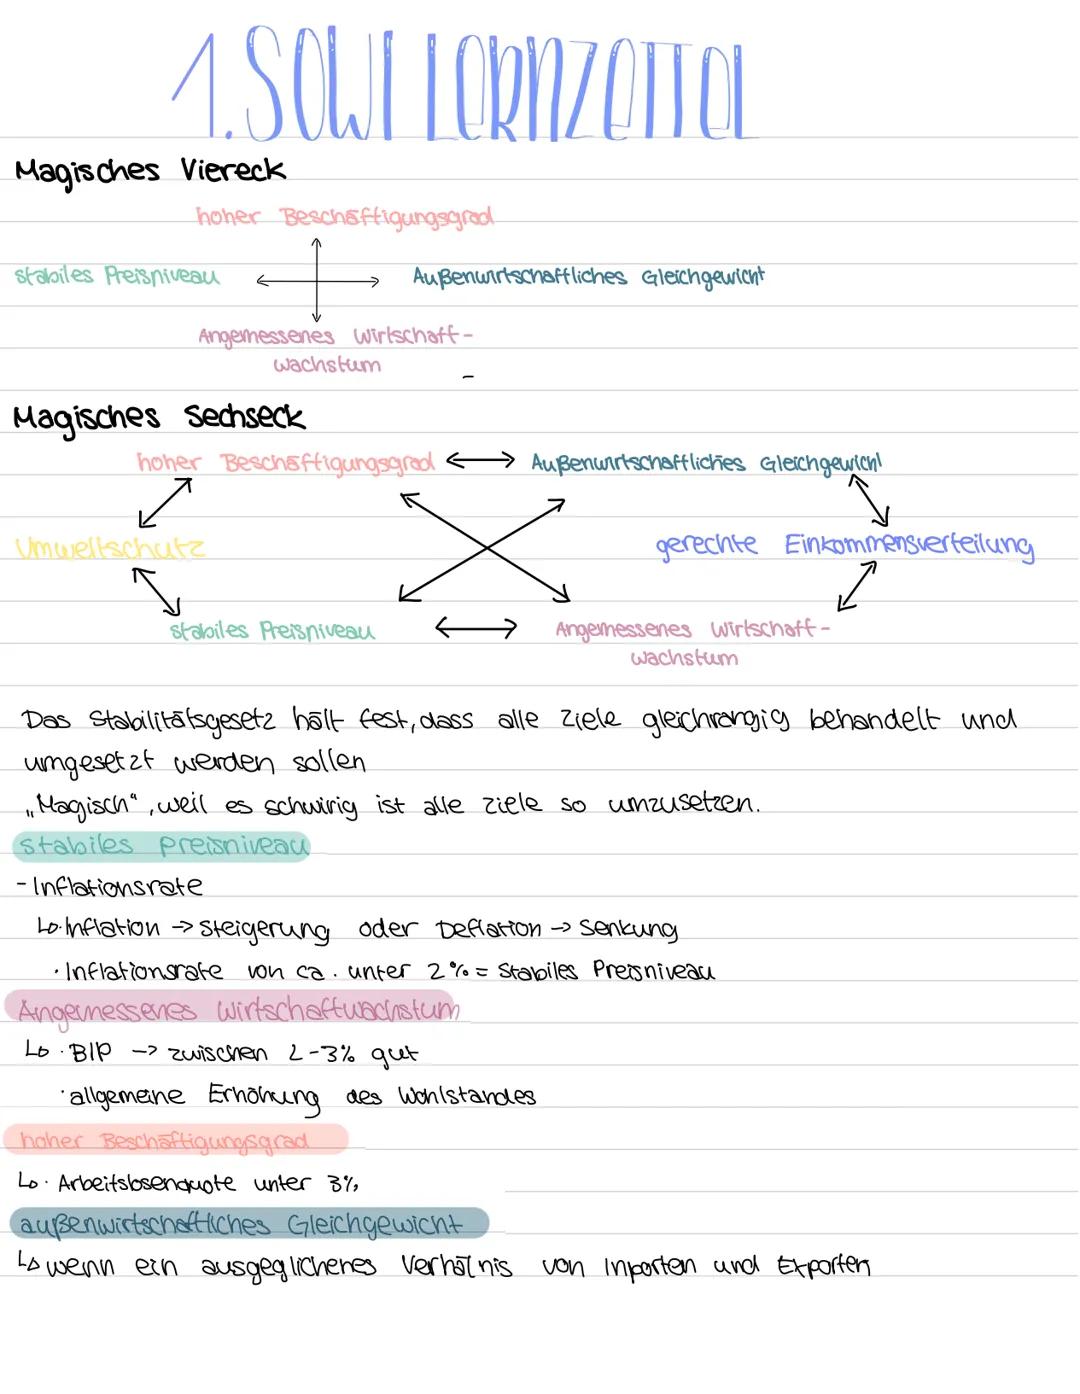 1. SOWI Lernzettel
Magisches Viereck
hoher Beschäftigungsgrad
stabiles Preisniveau Außenwirtschaftliches Gleichgewicht
Angemessenes Wirtschaft-
wachstum
Magisches Sechseck
hoher Beschäftigungsgrad Außenwirtschaftliches Gleichgewicht
Umweltschutz gerechte Einkommensverteilung
stabiles Preisniveau Angemessenes Wirtschaft-
wachstum
Das Stabilitätsgesetz hält fest, dass alle Ziele gleichrangig behandelt und
umgesetzt werden sollen
„Magisch“, weil es schwirig ist alle ziele so umzusetzen.
stabiles preisniveau
- Inflationsrate
↳ · Inflation → Steigerung oder Deflation → Senkung
· Inflationsrate von ca. unter 2% = Stabiles Preisniveau
Angemessenes Wirtschaftwachstum
↳ · BIP → zwischen 2-3% gut
· allgemeine Erhöhung des Wohlstandes
hoher Beschäftigungsgrad
↳ · Arbeitslosenquote unter 3%
außenwirtschaftliches Gleichgewicht
↳ wenn ein ausgeglichenes Verhälnis von Inporten und Exporten